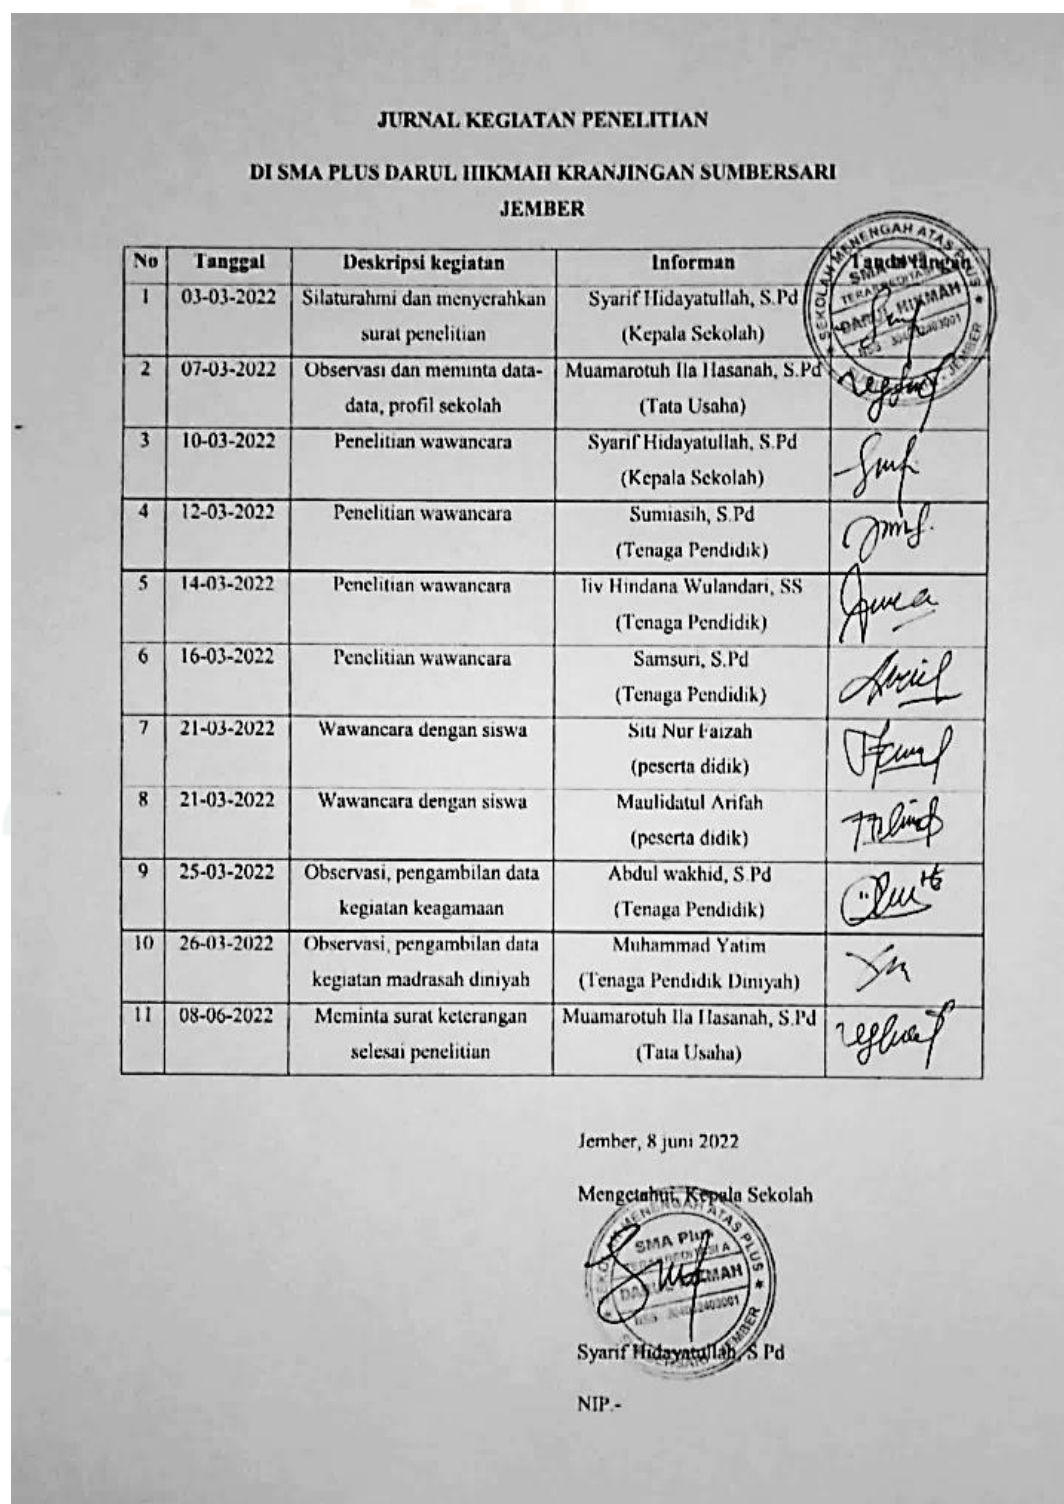 JURNAL KEGIATAN PENELITIAN
DI SMA PLUS DARUL HIKMAH KRANJINGAN SUMBERSARI
JEMBER
No Tanggal Deskripsi kegiatan Informan Tanda Tangan
1 03-03-2022 Silaturahmi dan menyerahkan Syarif Hidayatullah, S.Pd
surat penelitian (Kepala Sekolah)
2 07-03-2022 Observasi dan meminta data- Muamarotuh Ila Hasanah, S.Pd
data, profil sekolah (Tata Usaha)
3 10-03-2022 Penelitian wawancara Syarif Hidayatullah, S.Pd
(Kepala Sekolah)
4 12-03-2022 Penelitian wawancara Sumiasih, S.Pd
(Tenaga Pendidik)
5 14-03-2022 Penelitian wawancara Iiv Hindana Wulandari, SS
(Tenaga Pendidik)
6 16-03-2022 Penelitian wawancara Samsuri, S.Pd
(Tenaga Pendidik)
7 21-03-2022 Wawancara dengan siswa Siti Nur Faizah
(peserta didik)
8 21-03-2022 Wawancara dengan siswa Maulidatul Arifah
(peserta didik)
9 25-03-2022 Observasi, pengambilan data Abdul wakhid, S.Pd
kegiatan keagamaan (Tenaga Pendidik)
10 26-03-2022 Observasi, pengambilan data Muhammad Yatim
kegiatan madrasah diniyah (Tenaga Pendidik Diniyah)
11 08-06-2022 Meminta surat keterangan Muamarotuh Ila Hasanah, S.Pd
selesai penelitian (Tata Usaha)
SEKOLAH MENENGAH ATAS PLUS
DARUL HIKMAH
JEMBER
Jember, 8 juni 2022
Mengetahui, Kepala Sekolah
SEKOLAH MENENGAH ATAS PLUS
SMA Plus
DARUL HIKMAH
JEMBER
Syarif Hidayatullah, S Pd
NIP.-